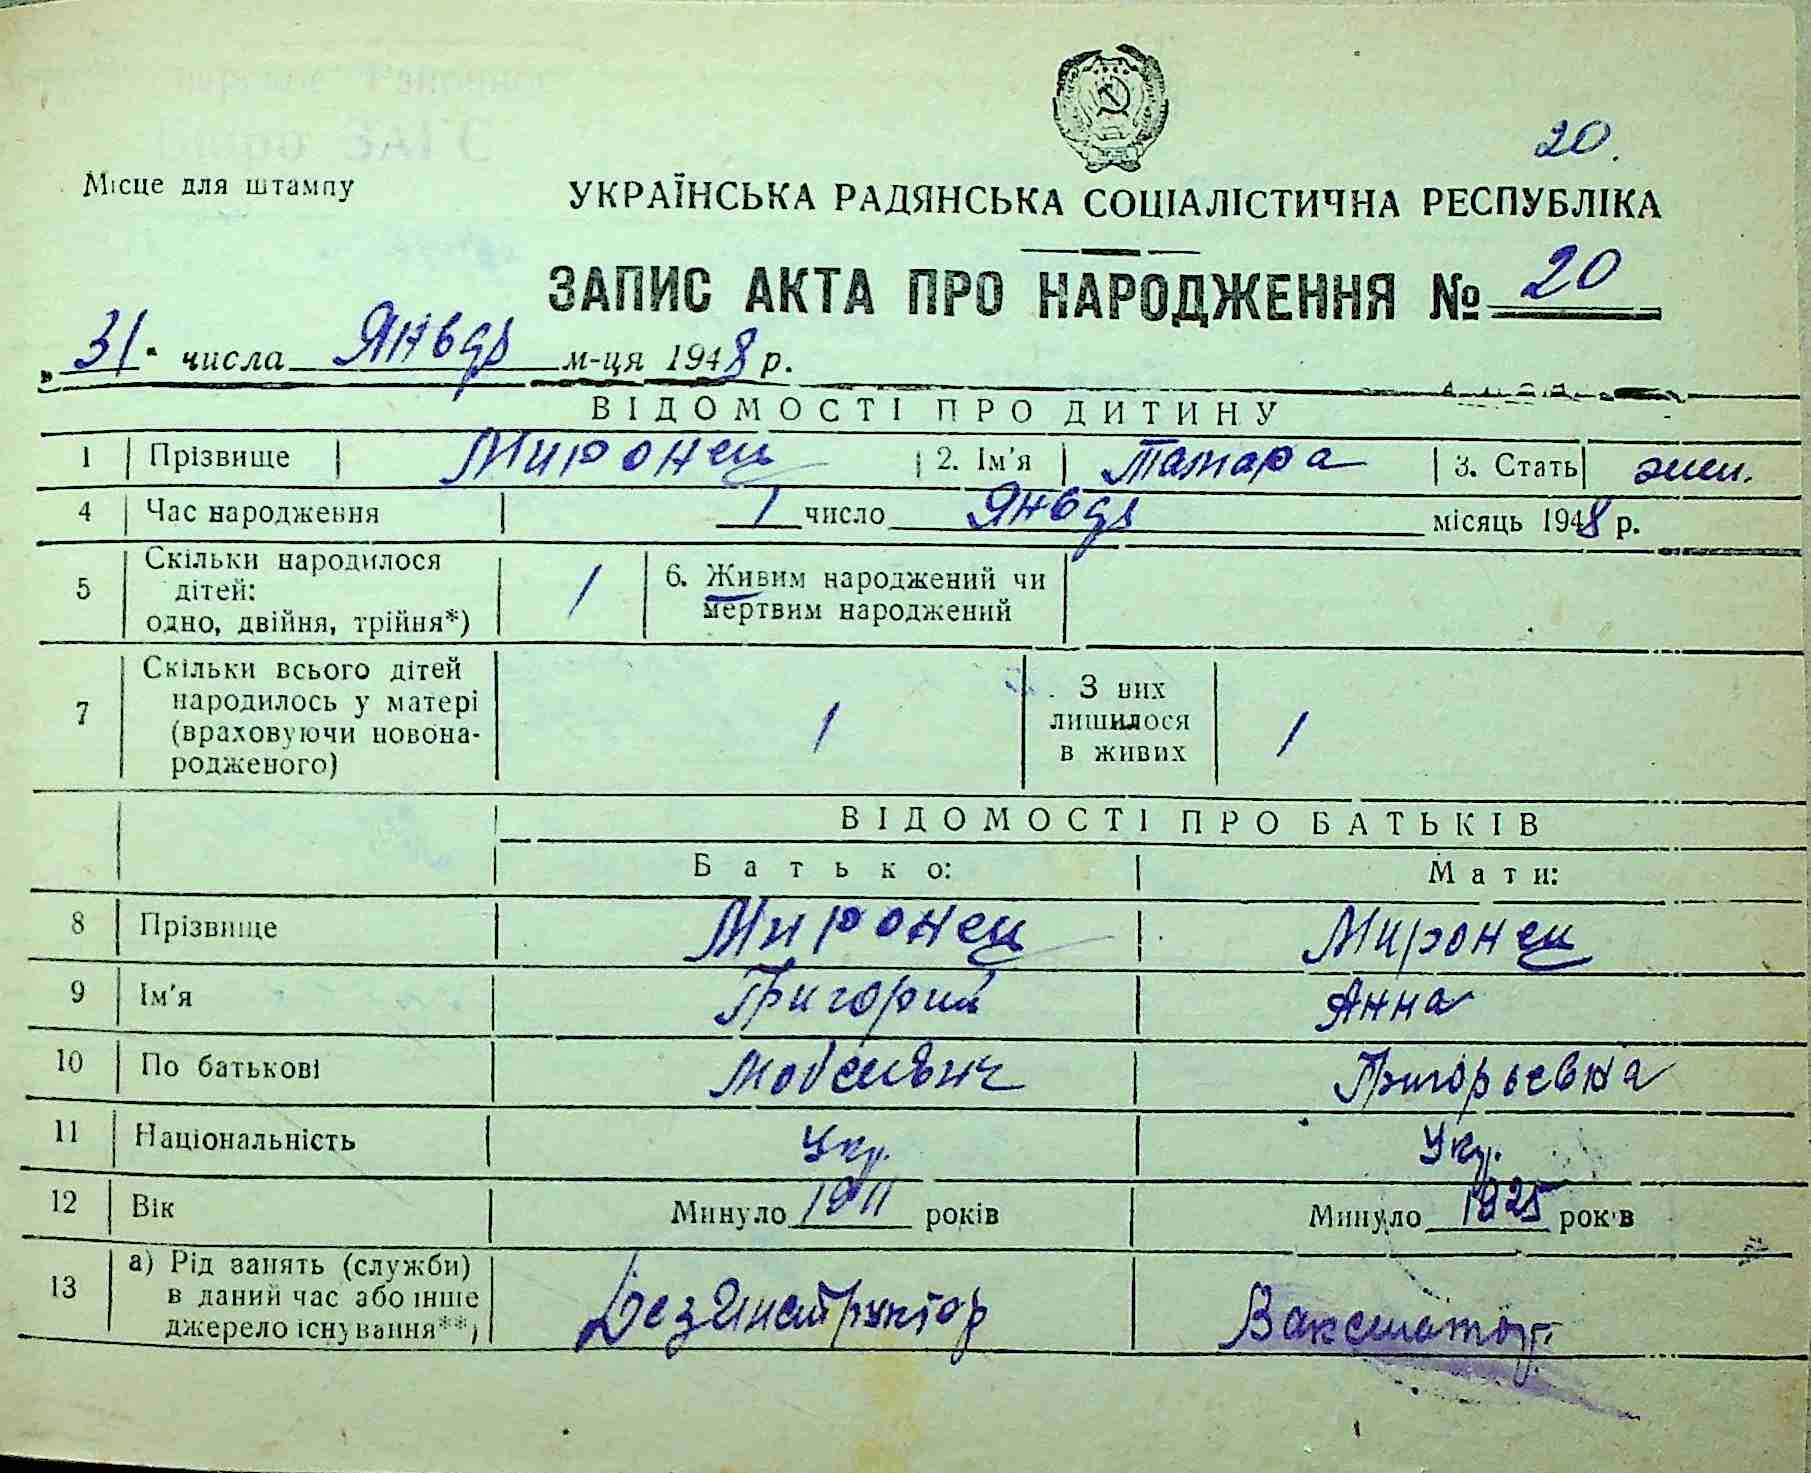 20.
Місце для штампу
УКРАЇНСЬКА РАДЯНСЬКА СОЦІАЛІСТИЧНА РЕСПУБЛІКА
ЗАПИС АКТА ПРО НАРОДЖЕННЯ № 20
„31" числа Январь м-ця 1948 р.
ВІДОМОСТІ ПРО ДИТИНУ
1 Прізвище Миронец 2. Ім'я Тамара 3. Стать жен.
4 Час народження 1 число Январь місяць 1948 р.
5 Скільки народилося
дітей:
одно, двійня, трійня*) 1 6. Живим народжений чи
мертвим народжений
7 Скільки всього дітей
народилось у матері
(враховуючи новона-
родженого) 1 З них
лишилося
в живих 1
ВІДОМОСТІ ПРО БАТЬКІВ
Батько: Мати:
8 Прізвище Миронец Миронец
9 Ім'я Григорий Анна
10 По батькові Григорьевна
11 Національність Укр. Укр.
12 Вік Минуло 1911 років Минуло 1925 років
13 а) Рід занять (служби)
в даний час або інше
джерело існування**) Дезинструктор